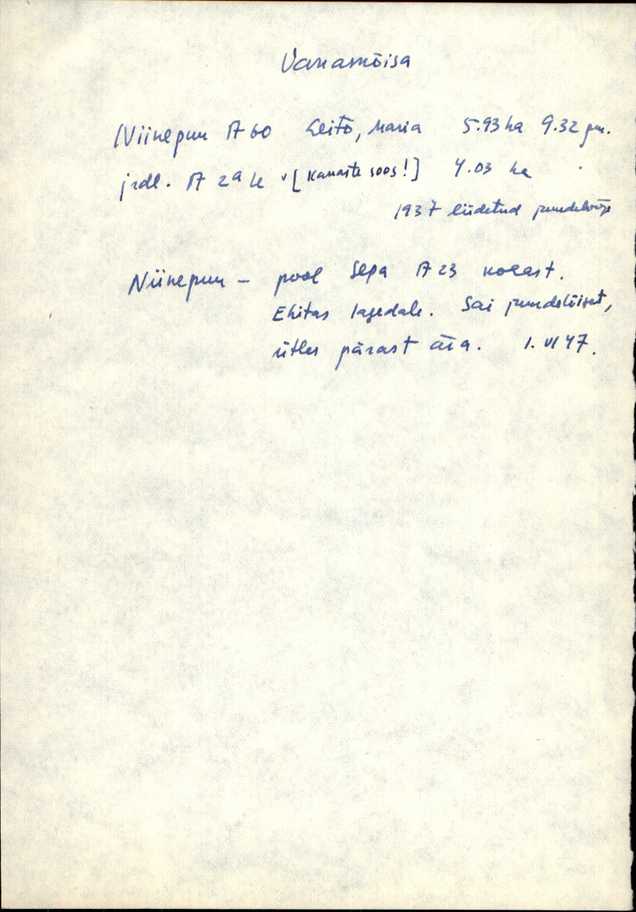 Vanamõisa
Niinepuu A 60 Leito, Maria 5.93 ha 9.32
jrdl. A 29 [Kanaste soos!] 4.03 ha
1937 liidetud
Niinepuu – pool Sepa A 23 kohast.
Ehitas lagedale. Sai
ütles pärast ära. 1. VI 47.